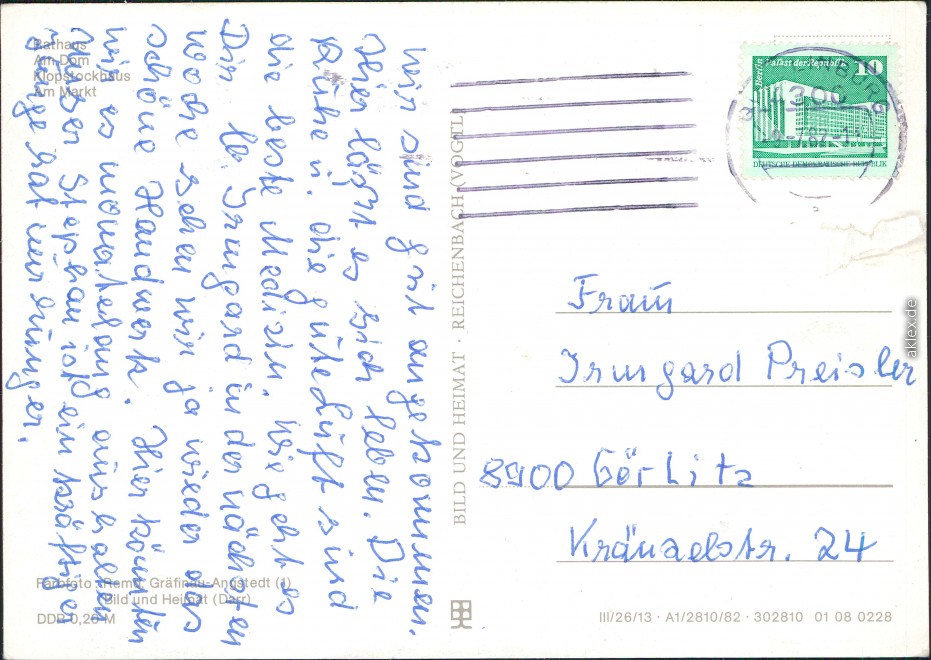 Rathaus
Am Dom
Klopstockhaus
Am Markt
Wir sind gut angekommen.
Hier läßt es sich leben. Die
Ruhe u. die gute Luft sind
die beste Medizin. Wie geht es
Dir lb. Irmgard in der nächsten
Woche sehen wir ja wieder das
schöne Handwerk. Hier könnten
wir es monatelang aushalten
Unser Stephan ist ein kräftiger
Junge hat nur Hunger.
Farbfoto: Remd, Gräfinau-Angstedt (1)
Bild und Heimat (Darr)
DDR 0,20 M
BILD UND HEIMAT · REICHENBACH (VOGTL)
Berlin Palast der Republik 10
DEUTSCHE DEMOKRATISCHE REPUBLIK
4300
-7.82-1
Frau
Irmgard Preisler
8900 Görlitz
Kränzelstr. 24
III/26/13 · A1/2810/82 · 302810 01 08 0228
aklex.de